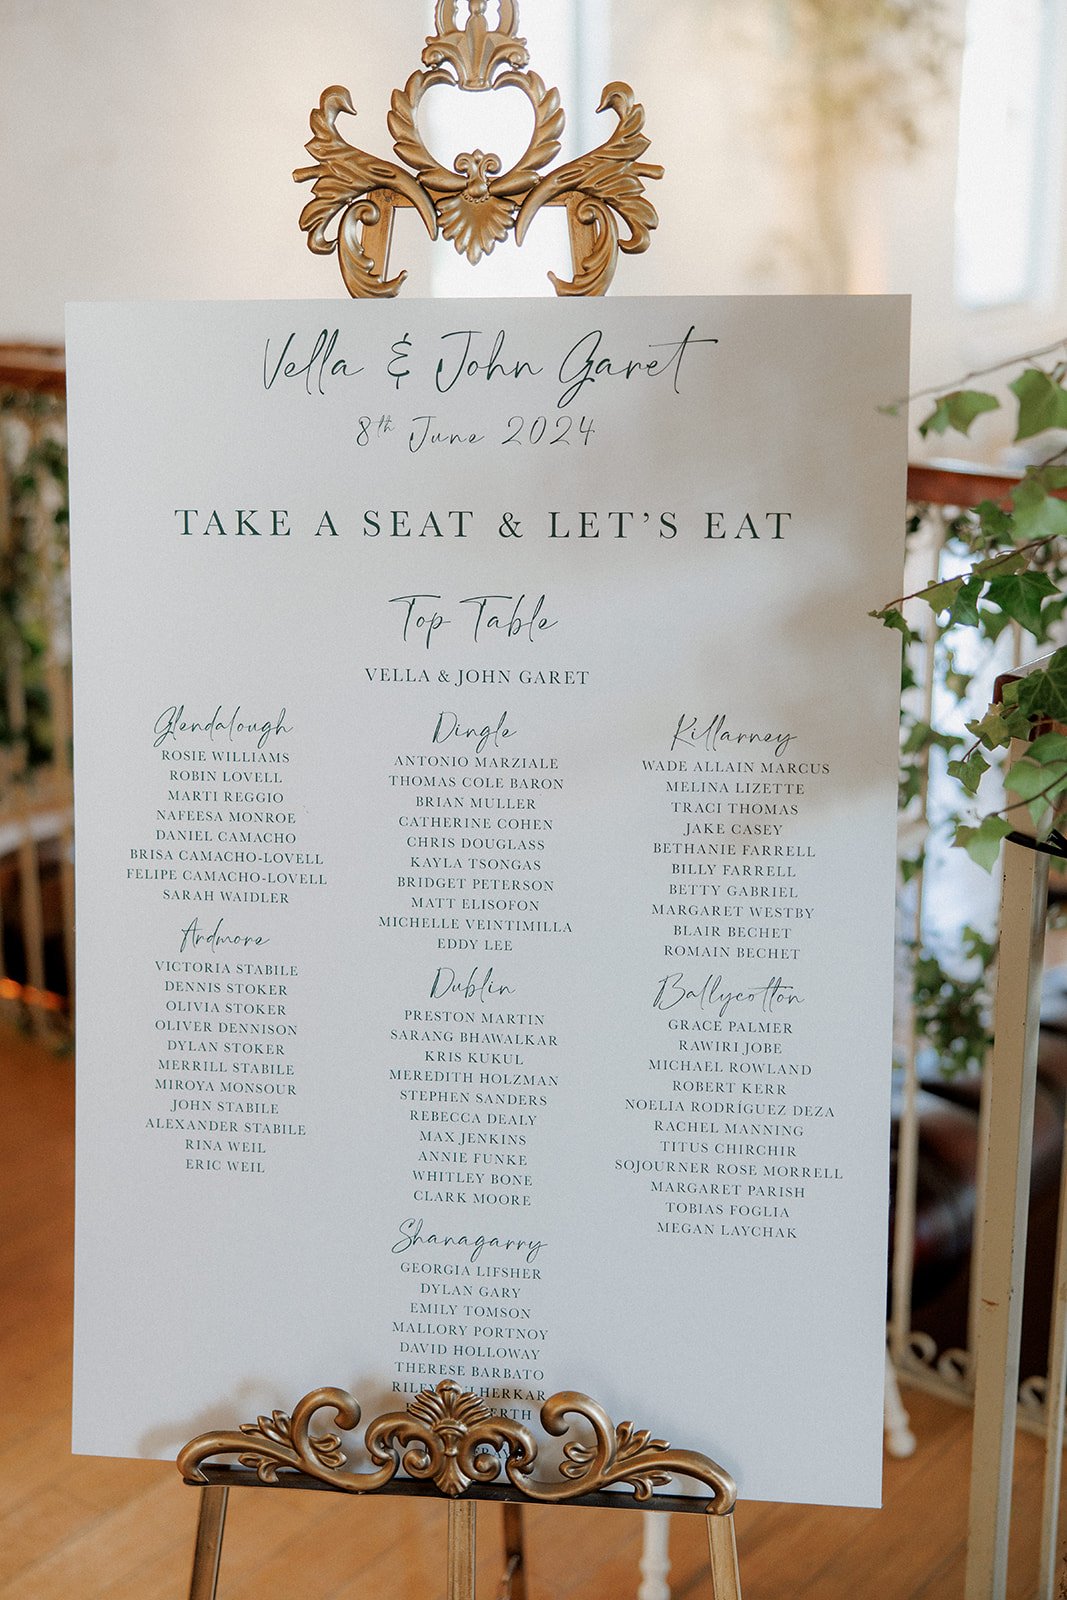 Vella & John Garet
8th June 2024
TAKE A SEAT & LET'S EAT
Top Table
VELLA & JOHN GARET
Glendalough
ROSIE WILLIAMS
ROBIN LOVELL
MARTI REGGIO
NAFEESA MONROE
DANIEL CAMACHO
BRISA CAMACHO-LOVELL
FELIPE CAMACHO-LOVELL
SARAH WAIDLER
Ardmore
VICTORIA STABILE
DENNIS STOKER
OLIVIA STOKER
OLIVER DENNISON
DYLAN STOKER
MERRILL STABILE
MIROYA MONSOUR
JOHN STABILE
ALEXANDER STABILE
RINA WEIL
ERIC WEIL
Dingle
ANTONIO MARZIALE
THOMAS COLE BARON
BRIAN MULLER
CATHERINE COHEN
CHRIS DOUGLASS
KAYLA TSONGAS
BRIDGET PETERSON
MATT ELISOFON
MICHELLE VEINTIMILLA
EDDY LEE
Dublin
PRESTON MARTIN
SARANG BHAWALKAR
KRIS KUKUL
MEREDITH HOLZMAN
STEPHEN SANDERS
REBECCA DEALY
MAX JENKINS
ANNIE FUNKE
WHITLEY BONE
CLARK MOORE
Shanagarry
GEORGIA LIFSHER
DYLAN GARY
EMILY TOMSON
MALLORY PORTNOY
DAVID HOLLOWAY
THERESE BARBATO
RILEY
Killarney
WADE ALLAIN MARCUS
MELINA LIZETTE
TRACI THOMAS
JAKE CASEY
BETHANIE FARRELL
BILLY FARRELL
BETTY GABRIEL
MARGARET WESTBY
BLAIR BECHET
ROMAIN BECHET
Ballycotton
GRACE PALMER
RAWIRI JOBE
MICHAEL ROWLAND
ROBERT KERR
NOELIA RODRÍGUEZ DEZA
RACHEL MANNING
TITUS CHIRCHIR
SOJOURNER ROSE MORRELL
MARGARET PARISH
TOBIAS FOGLIA
MEGAN LAYCHAK